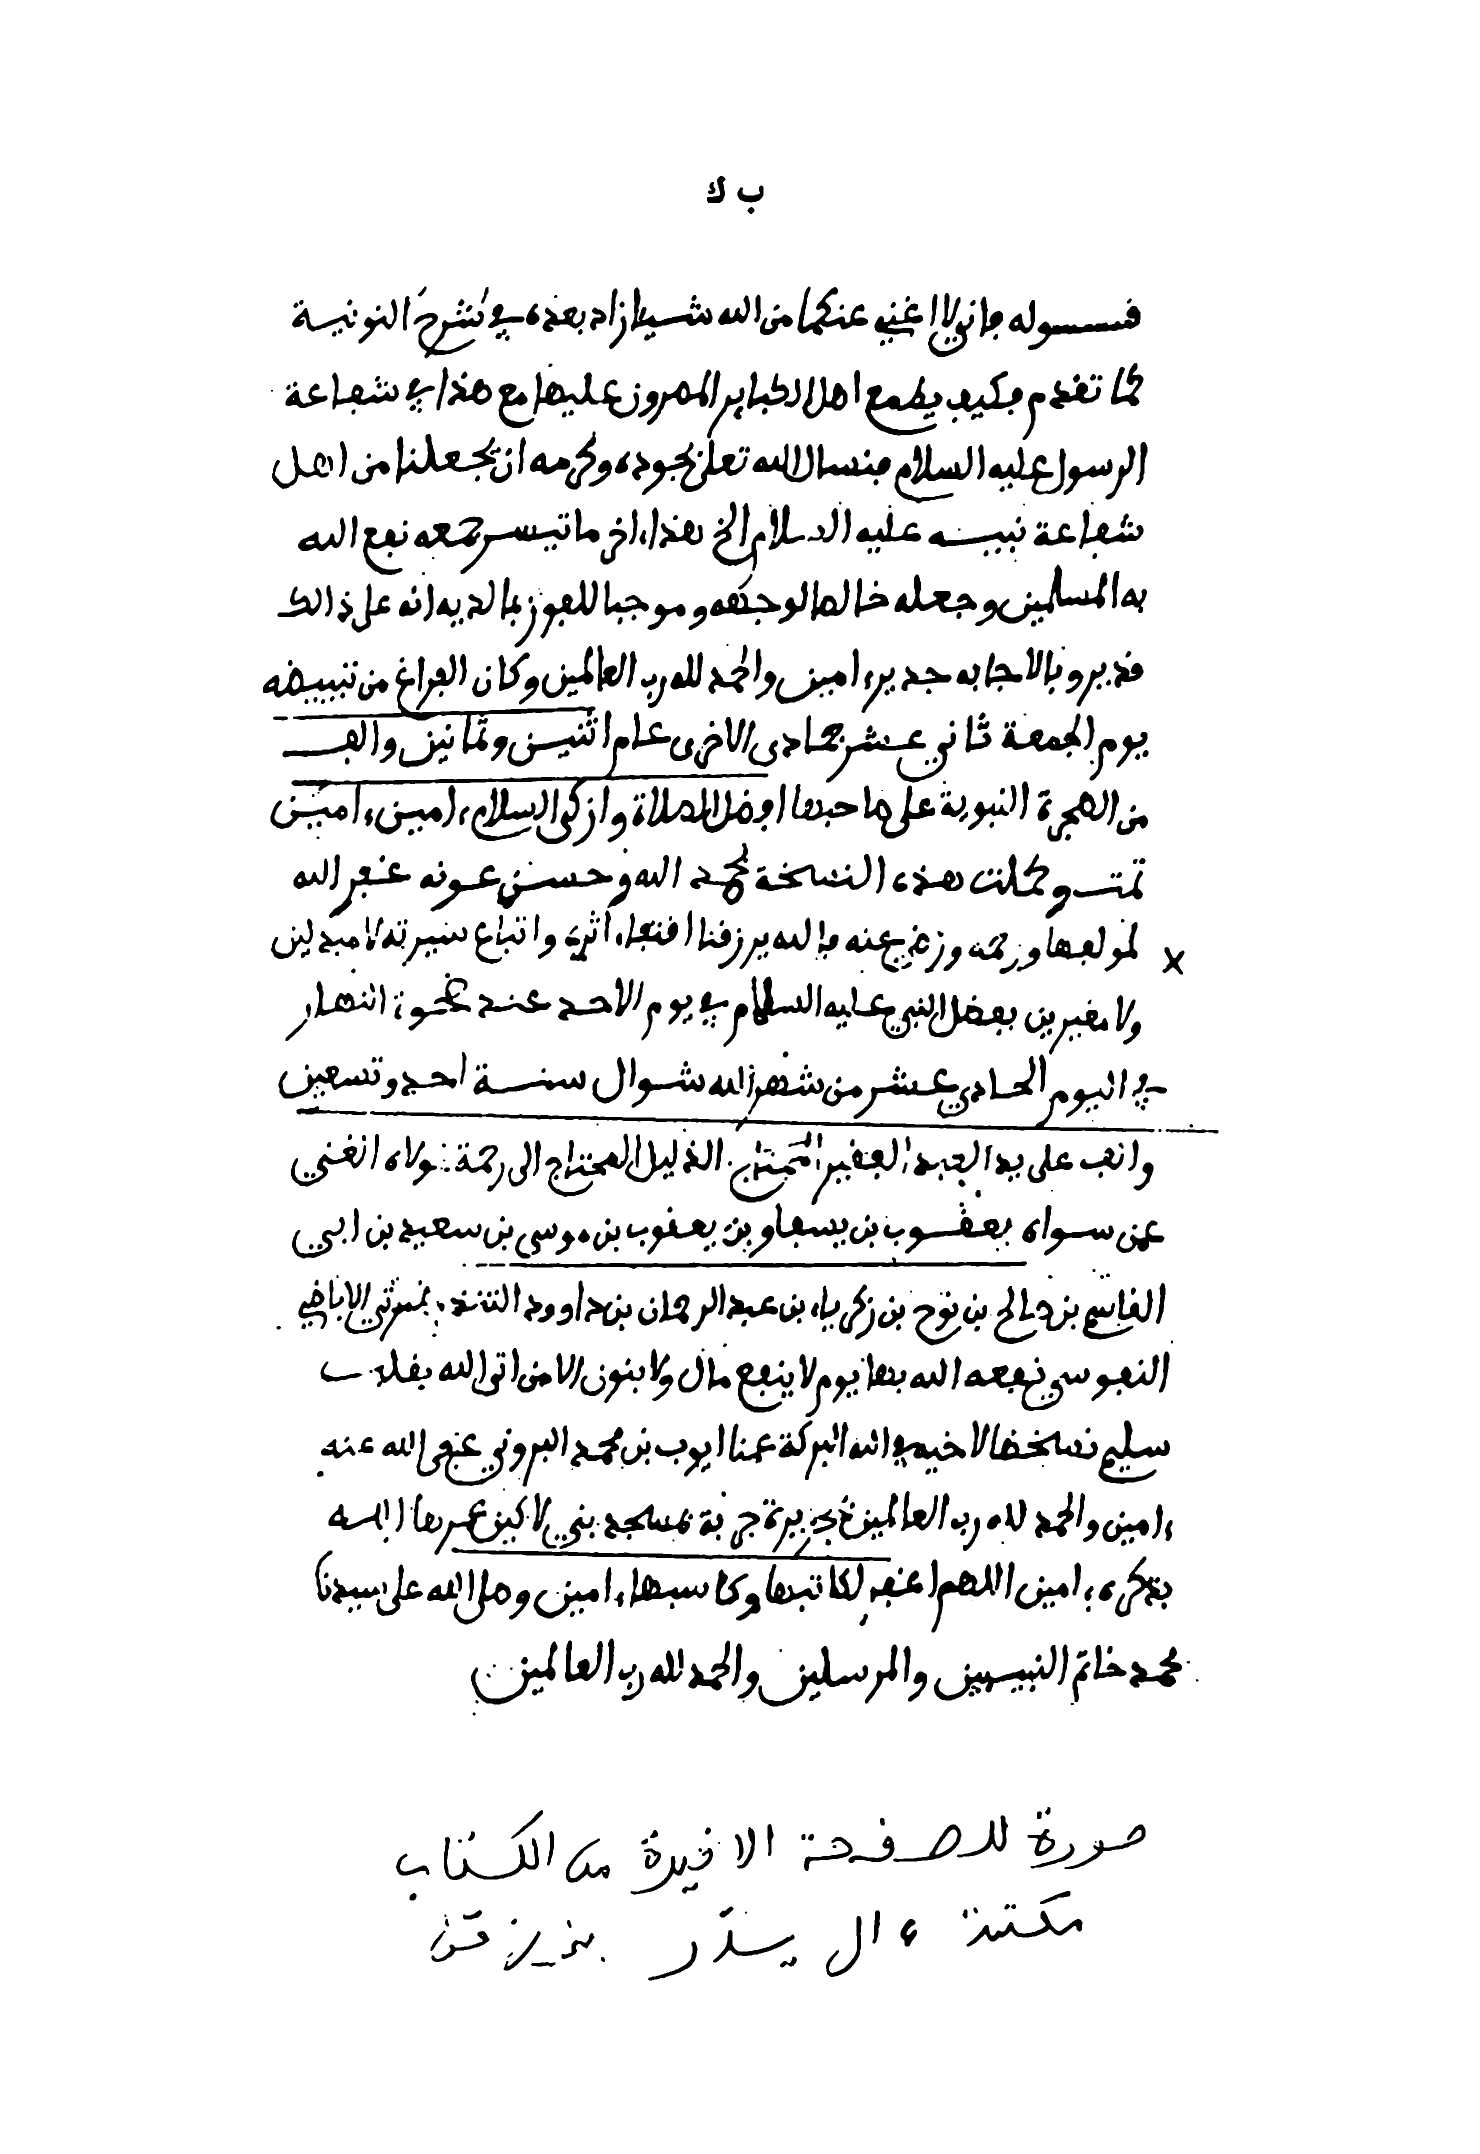 ب ك
قـــوله فاني لا اغني عنكما من الله شيئا زاد بعده في شرح النونية
كما تقدم فكيف يطمع اهل الكباير المصرون عليها مع هذا في شفاعة
الرسول عليه السلام فنسال الله تعلى بجوده وكرمه ان يجعلنا من اهل
شفاعة نبيـــه عليه السلام الخ هذا ءاخر ما تيسر جمعه نفع الله
به المسلمين وجعله خالصا لوجهه وموجبا للفوز بما لديه انه على ذالك
قدير وبالاجابه جدير ءامين والحمد لله رب العالمين وكان الفراغ من تبييضه
يوم الجمعة ثاني عشر جمادى الاخرى عام اثنين وثمانين والف
من الهجرة النبوية على صاحبها افضل الصلاة وازكى السلام ءامين ءامين
تمت وكملت هذه النسخة بحمد الله وحسن عونه غفر الله
لمولفها ورحمه ورضي عنه فالله يرزقنا اقتفاء اثره واتباع سيرته لا مبدلين
ولا مغيرين بفضل النبي عليه السلام في يوم الاحد عند ضحوة النهار
في اليوم الحادي عشر من شهر الله شوال سنة احد وتسعين
والف على يد العبد الفقير الذليل المحتاج الى رحمة مولاه الغني
عمن سواه يعقوب بن يسفاو بن يعقوب بن موسى بن سعيد بن ابي
القاسم بن صالح بن نوح بن زكرياء بن عبد الرحمان بن داوود الاباضي
النفوسي نفعه الله بها يوم لا ينفع مال ولا بنون الا من اتى الله بقلب
سليم نسخها لاخيه في الله البركة عمنا ايوب بن محمد البروني عفى الله عنه
ءامين والحمد لله رب العالمين في جزيرة جربة بمسجد بني لاكين عمرها الله
بذكره ءامين اللهم اغفر لكاتبها وكاسبها ءامين وصلى الله على سيدنا
محمد خاتم النبيين والمرسلين والحمد لله رب العالمين
صورة للصفحة الاخيرة من الكتاب
مكتبة ءال يدّر
x